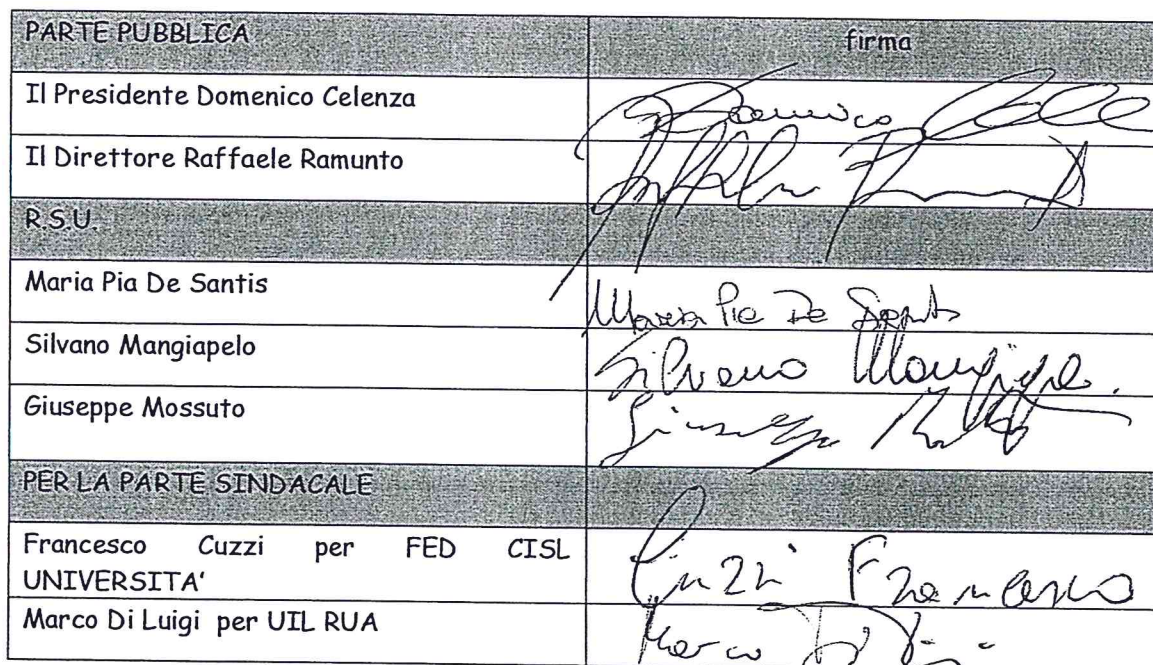 PARTE PUBBLICA firma
Il Presidente Domenico Celenza Domenico
Il Direttore Raffaele Ramunto
R.S.U.
Maria Pia De Santis Maria Pia De Santis
Silvano Mangiapelo Silvano
Giuseppe Mossuto Giuseppe
PER LA PARTE SINDACALE
Francesco Cuzzi per FED CISL
UNIVERSITA' Cuzzi Francesco
Marco Di Luigi per UIL RUA Marco Di Luigi